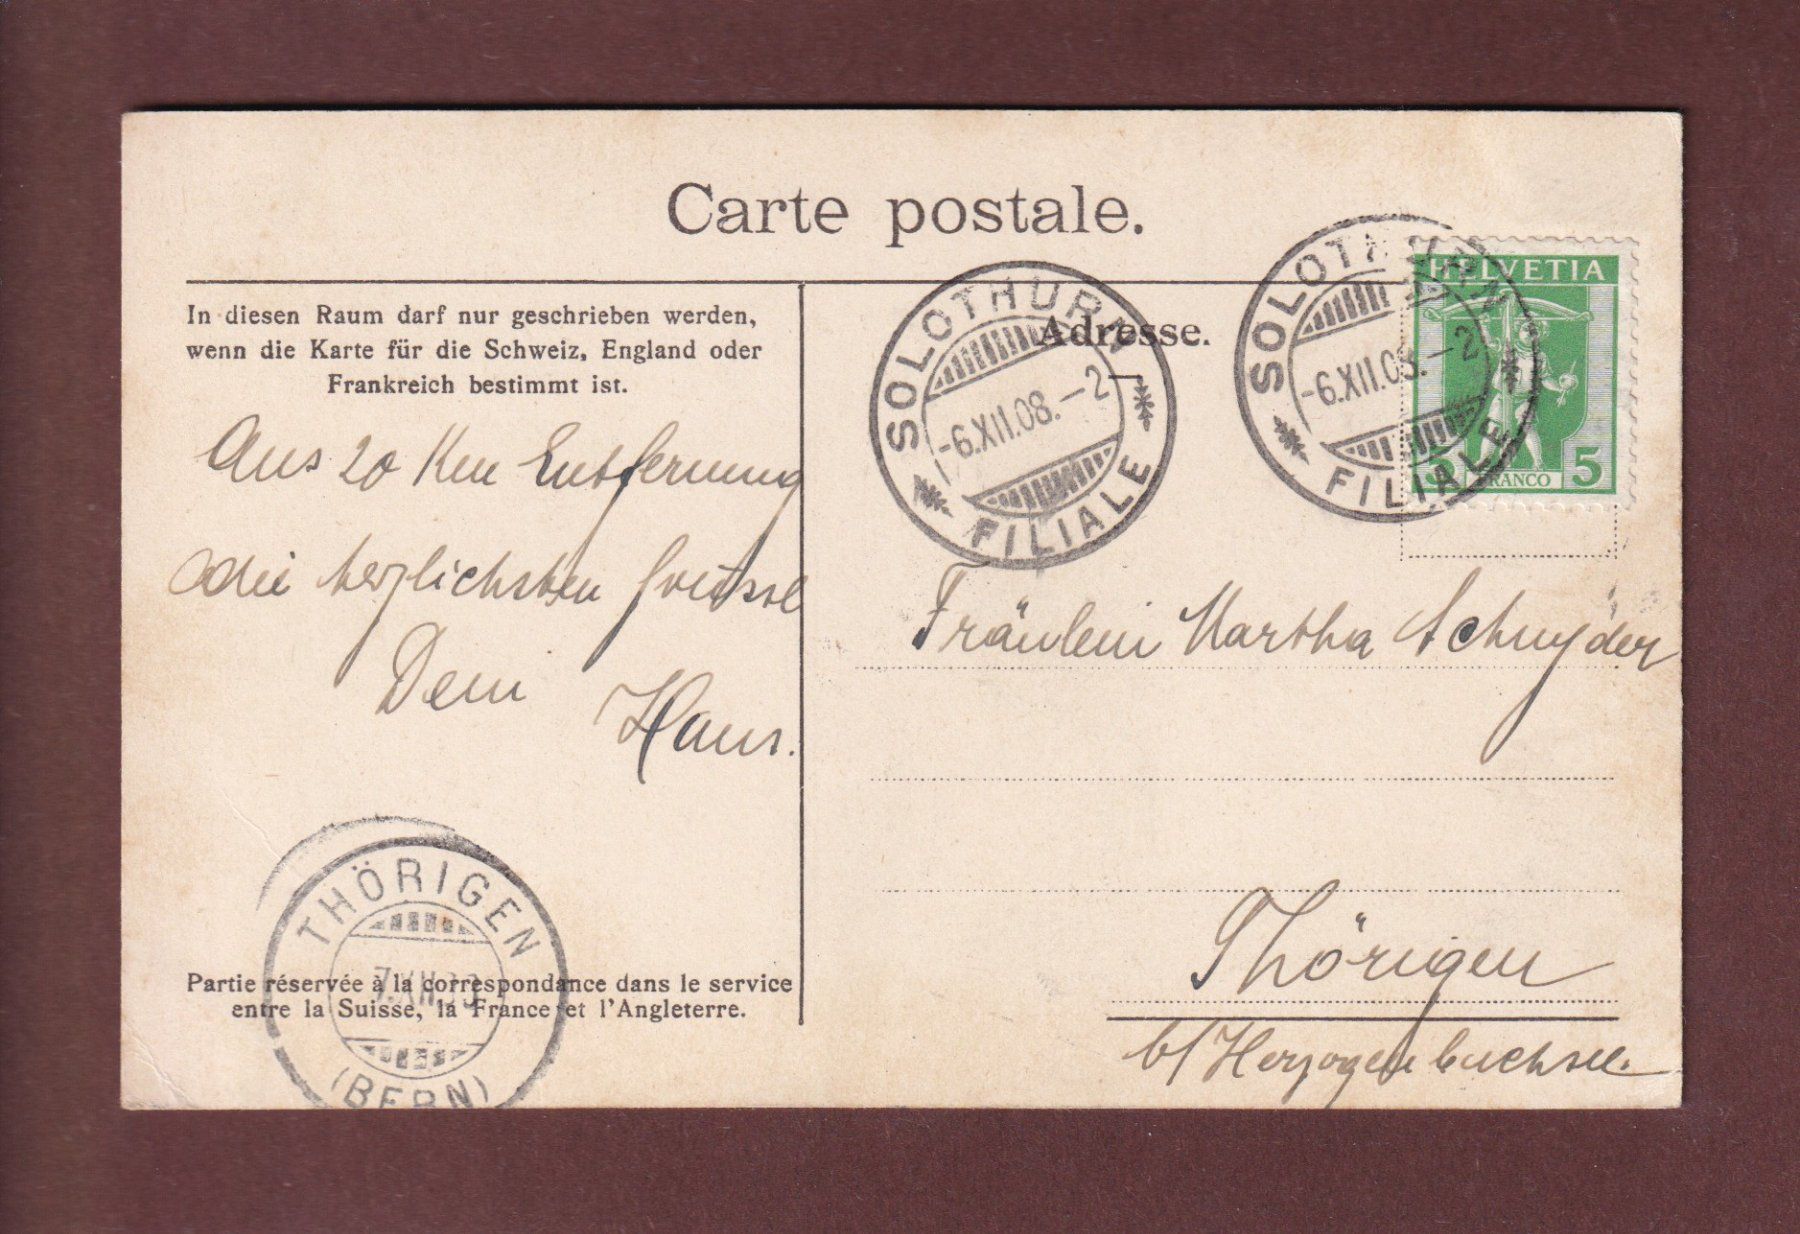 Carte postale.
In diesen Raum darf nur geschrieben werden,
wenn die Karte für die Schweiz, England oder
Frankreich bestimmt ist.
Aus 20 Km Entfernung
die herzlichsten Grüsse
Dein
Hans.
Partie réservée à la correspondance dans le service
entre la Suisse, la France et l'Angleterre.
THÖRIGEN
7.XII.08
(BERN)
Adresse.
SOLOTHURN
-6.XII.08.-2
FILIALE
SOLOTHURN
-6.XII.08.-2
FILIALE
HELVETIA
5 FRANCO 5
Fräulein Martha Schnyder
Thörigen
b/Herzogenbuchsee.